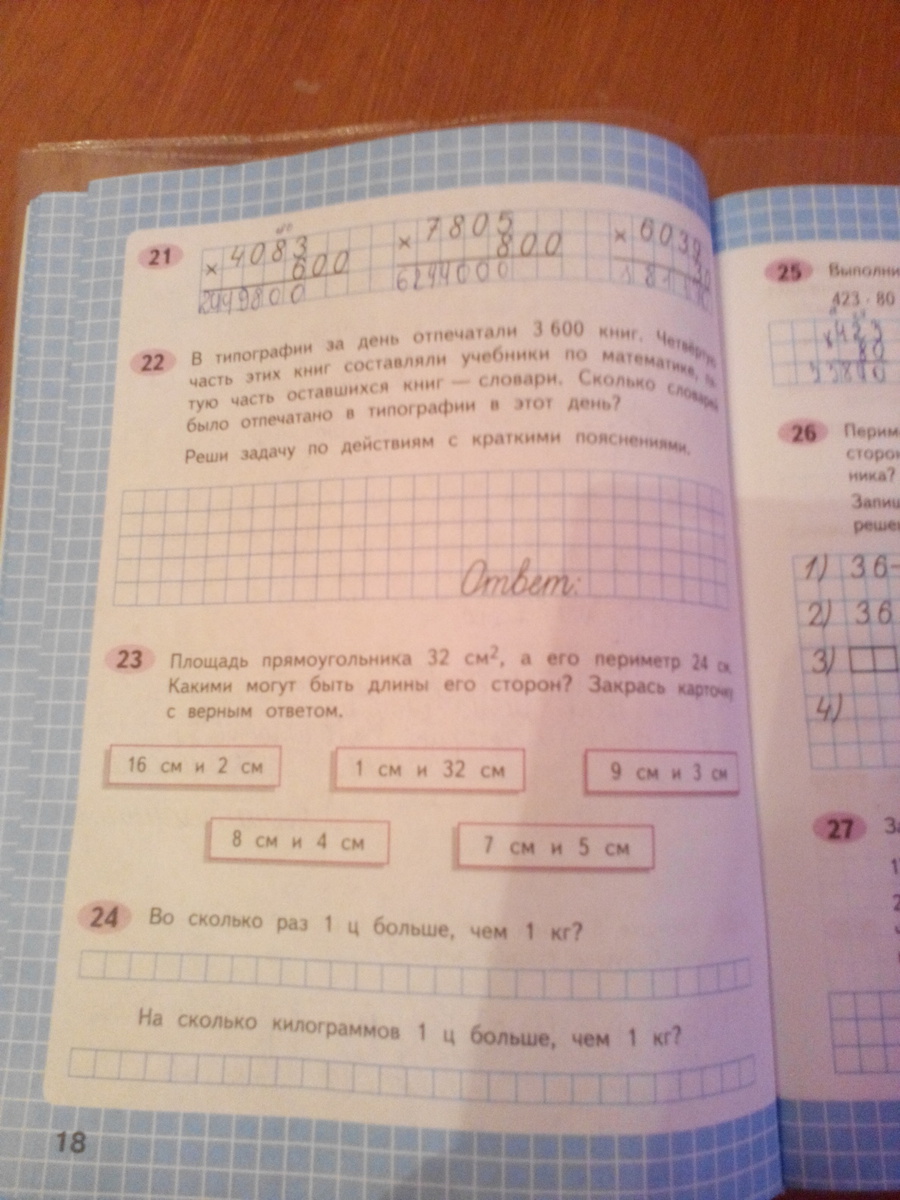 21
× 4083
600
2449800
× 7805
800
6244000
× 603
22 В типографии за день отпечатали 3 600 книг. Четвёртую
часть этих книг составляли учебники по математике,
тую часть оставшихся книг — словари. Сколько словарей
было отпечатано в типографии в этот день?
Реши задачу по действиям с краткими пояснениями.
Ответ:
23 Площадь прямоугольника 32 см², а его периметр 24 см.
Какими могут быть длины его сторон? Закрась карточку
с верным ответом.
16 см и 2 см
1 см и 32 см
9 см и 3 см
8 см и 4 см
7 см и 5 см
24 Во сколько раз 1 ц больше, чем 1 кг?
На сколько килограммов 1 ц больше, чем 1 кг?
18
25 Выполни
423 · 80
× 423
80
33840
26 Перим
сторон
ника?
Запиш
реше
1) 36-
2) 36
3)
4)
27 За
1
2